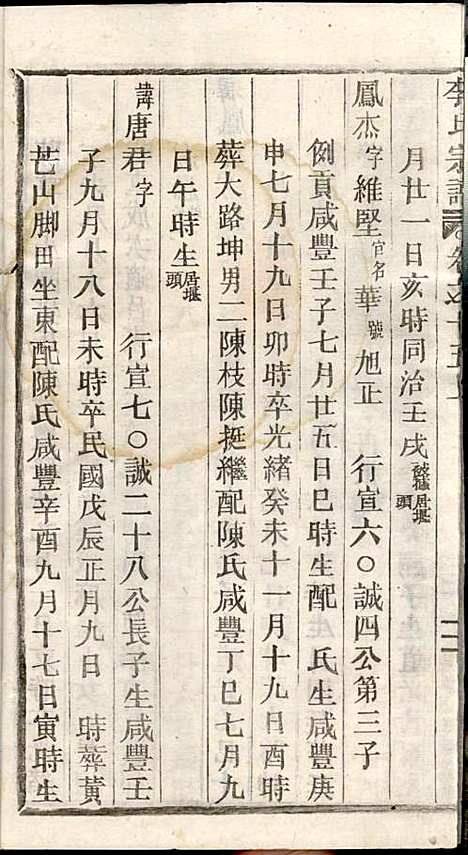 李氏宗譜 卷之十五上
月廿一日亥時同治壬戌 居堰頭
鳳杰字維堅官名華號旭正 行宣六〇誠四公第三子
例貢咸豐壬子七月廿五日巳時生配 氏生咸豐庚
申七月十九日卯時卒光緒癸未十一月十九日酉時
葬大路坤男二陳枝陳挺繼配陳氏咸豐丁巳七月九
日午時生居堰頭
諱唐君字 行宣七〇誠二十八公長子生咸豐壬
子九月十八日未時卒民國戊辰正月九日 時葬黃
芒山脚田坐東配陳氏咸豐辛酉九月十七日寅時生